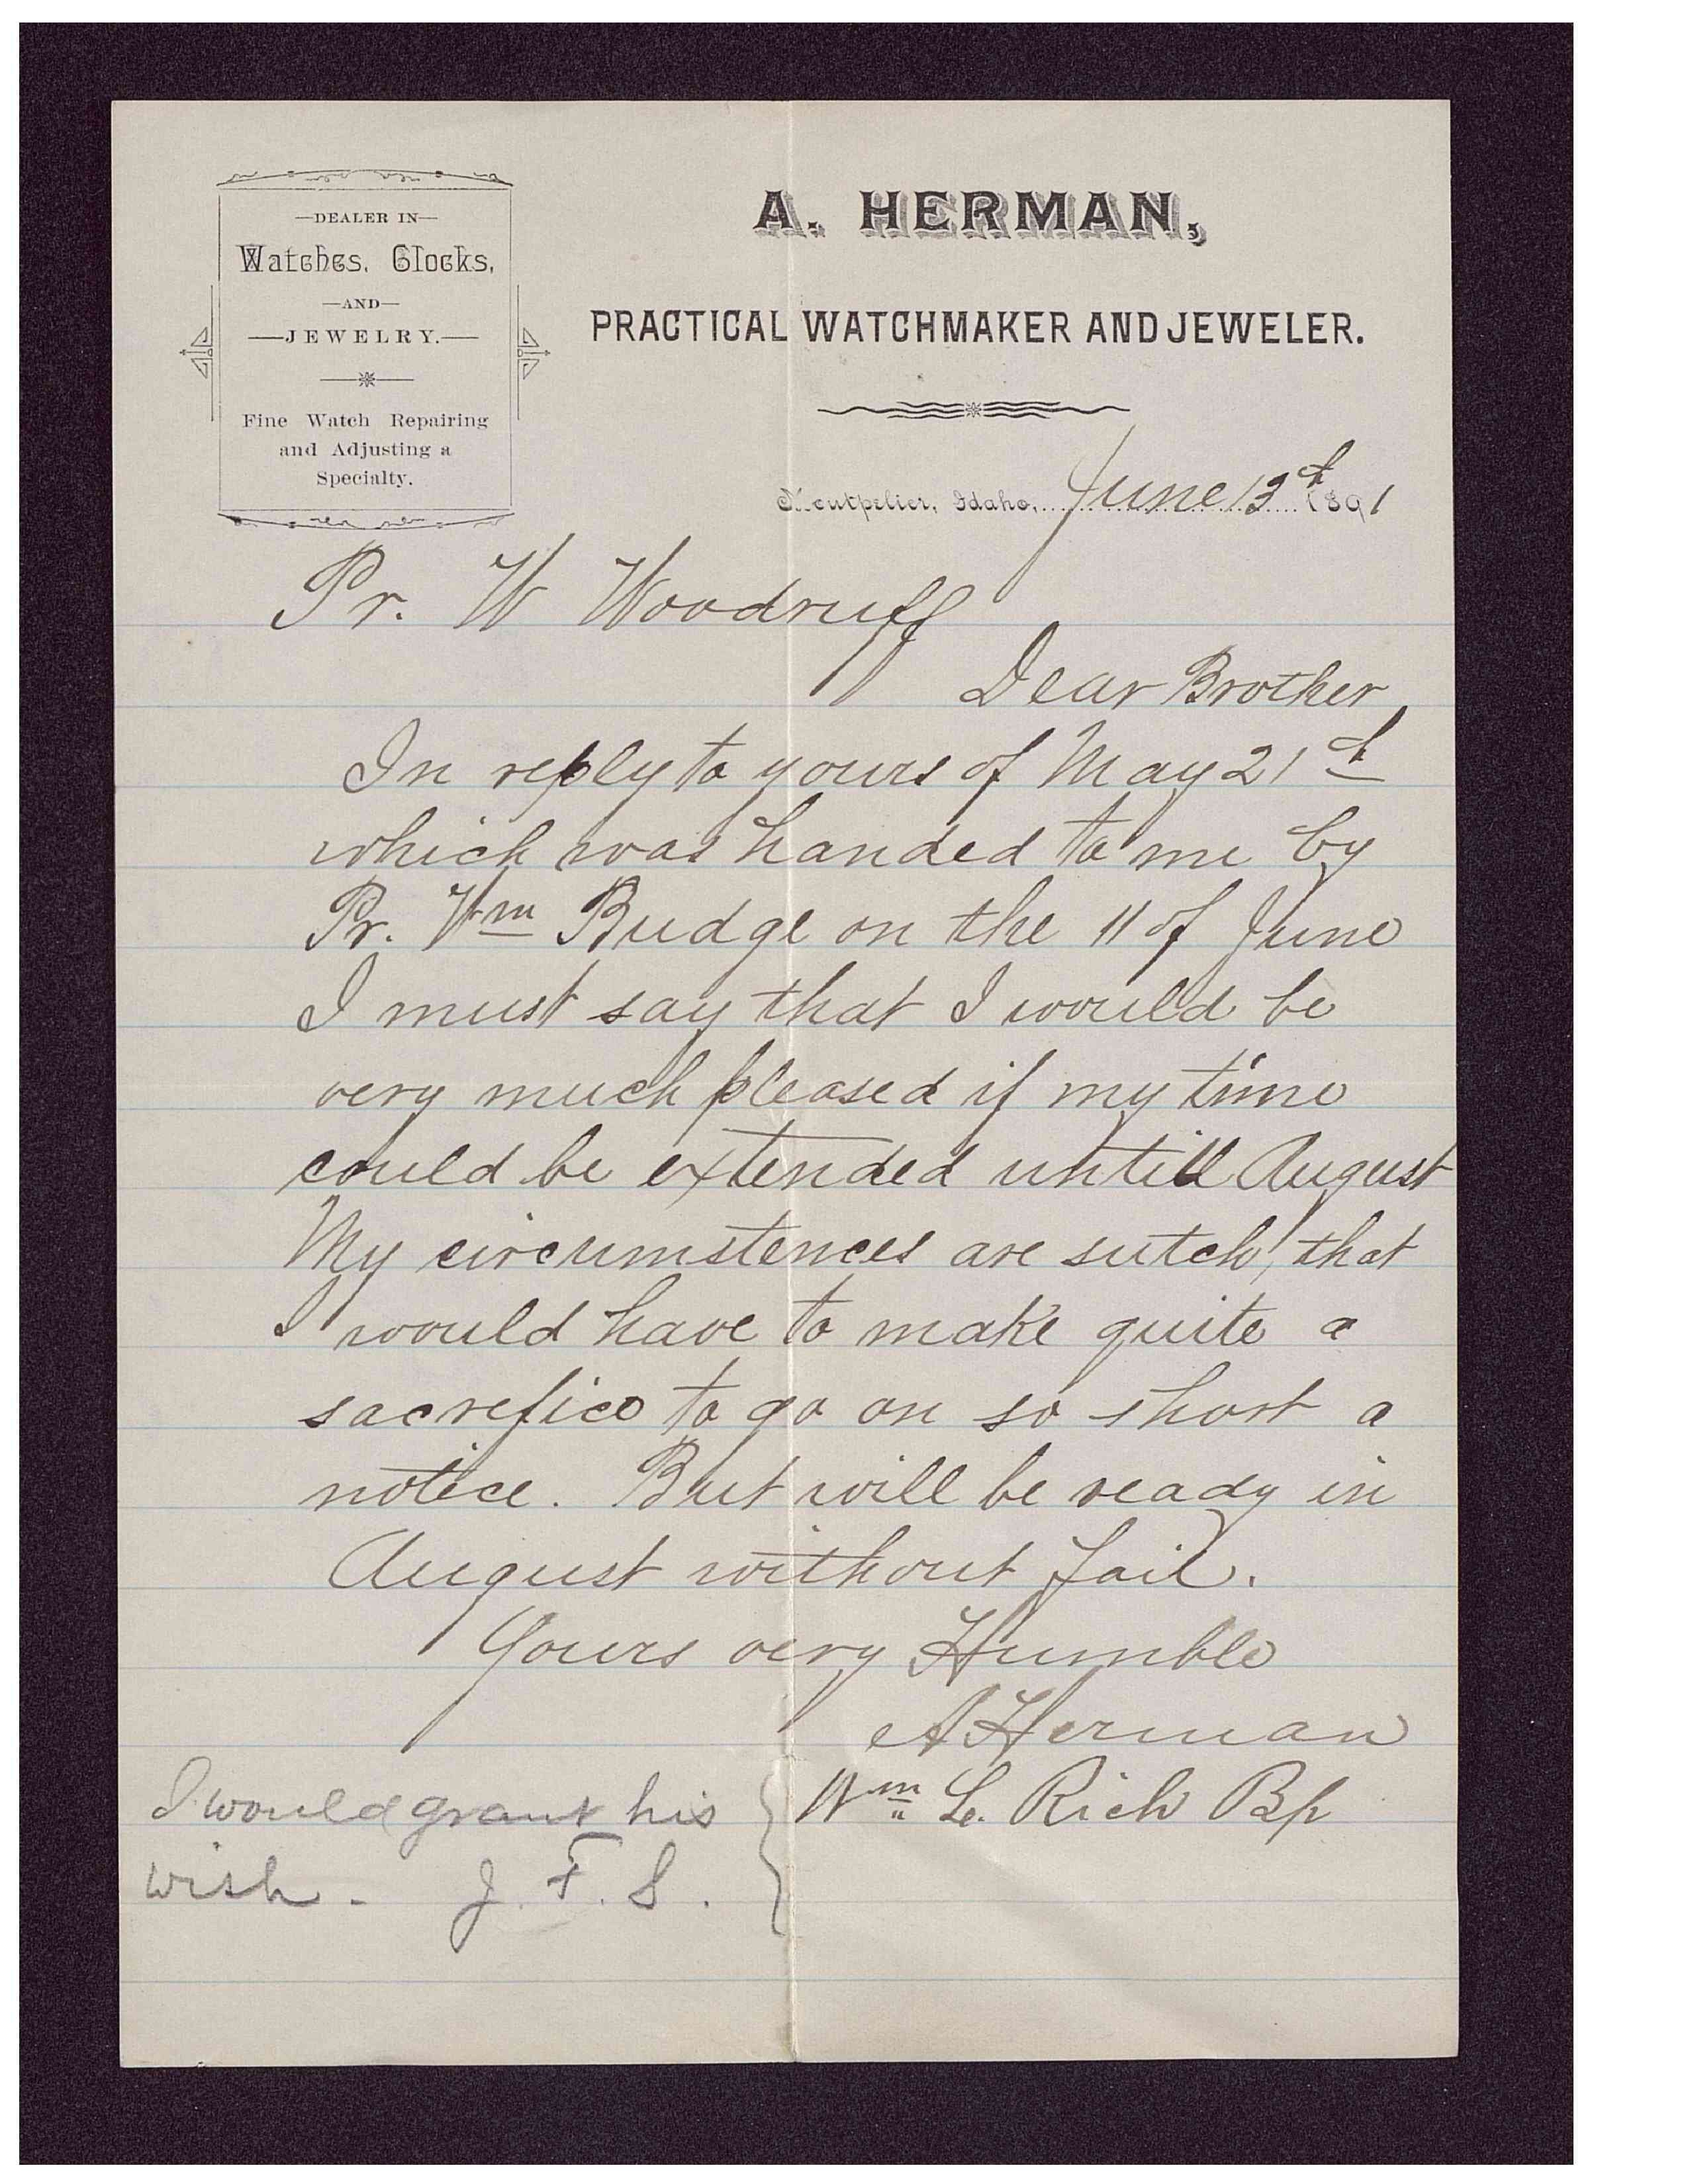 —DEALER IN—
Watches, Clocks,
—AND—
—JEWELRY.—
Fine Watch Repairing
and Adjusting a
Specialty.
A. HERMAN,
PRACTICAL WATCHMAKER AND JEWELER.
Montpelier, Idaho, June 13th 1891
Pr. W Woodruff
Dear Brother
In reply to yours of May 21st
which was handed to me by
Pr. Wm Budge on the 11 of June
I must say that I would be
very much pleased if my time
could be extended untill August
My circumstences are sutch, that
I would have to make quite a
sacrefice to go on so short a
notice. But will be ready in
August without fail.
Yours very Humble
A Herman
Wm L. Rich Bp
I would grant his
wish - J. F. S.